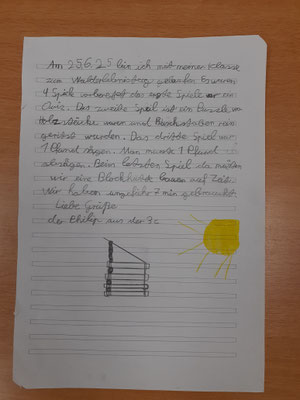 Am 25.6.25 bin ich mit meiner Klasse
zum Walderlebnistag gelaufen Es waren
4 Spiele vorbereitet das erste Spiele war ein
Quiz. Das zweite Spiel ist ein Puzzle wo
Holz stücke waren und Buchstaben rein
geritzt wurden. Das dritte Spiel war
1 Pfund sägen. Man musste 1 Pfund
absägen. Beim letzten Spiel da mußten
wir eine Blockhütte bauen auf Zeit.
Wir haben ungefähr 7 min gebraucht
Liebe Grüße
der Philip aus der 3c